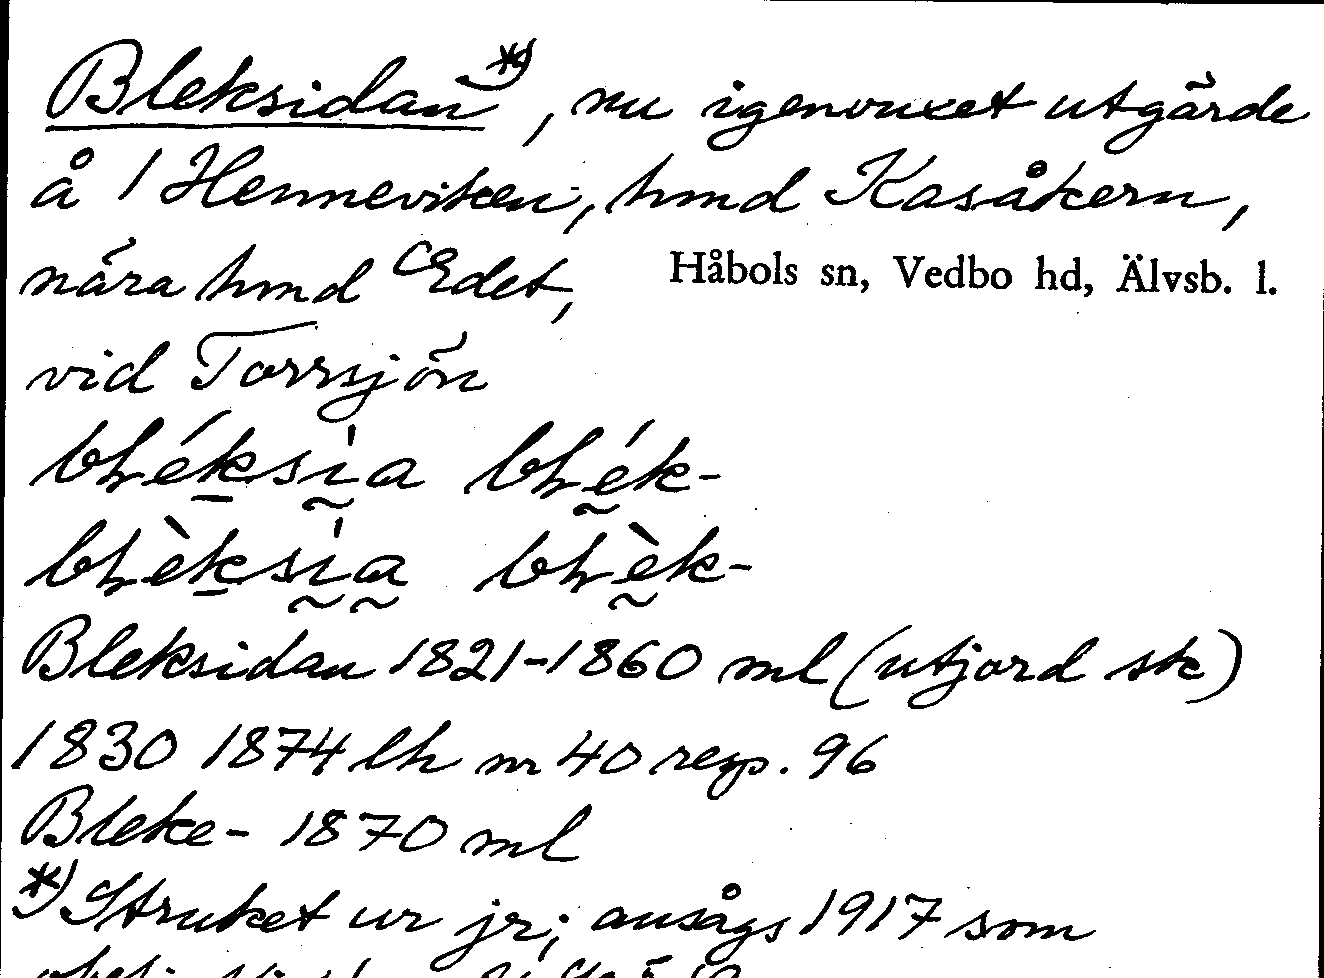 Bleksidan *), nu igenvuxet utgärde
å 1 Henneviken, hmd Kasåkern,
nära hmd Edet, Håbols sn, Vedbo hd, Älvsb. l.
vid Torrsjön
Bleksidan 1821-1860 ml (utjord sk)
1830 1874 lh nr 40 resp. 96
Bleke- 1870 ml
*) Struket ur jr; ansågs 1917 som